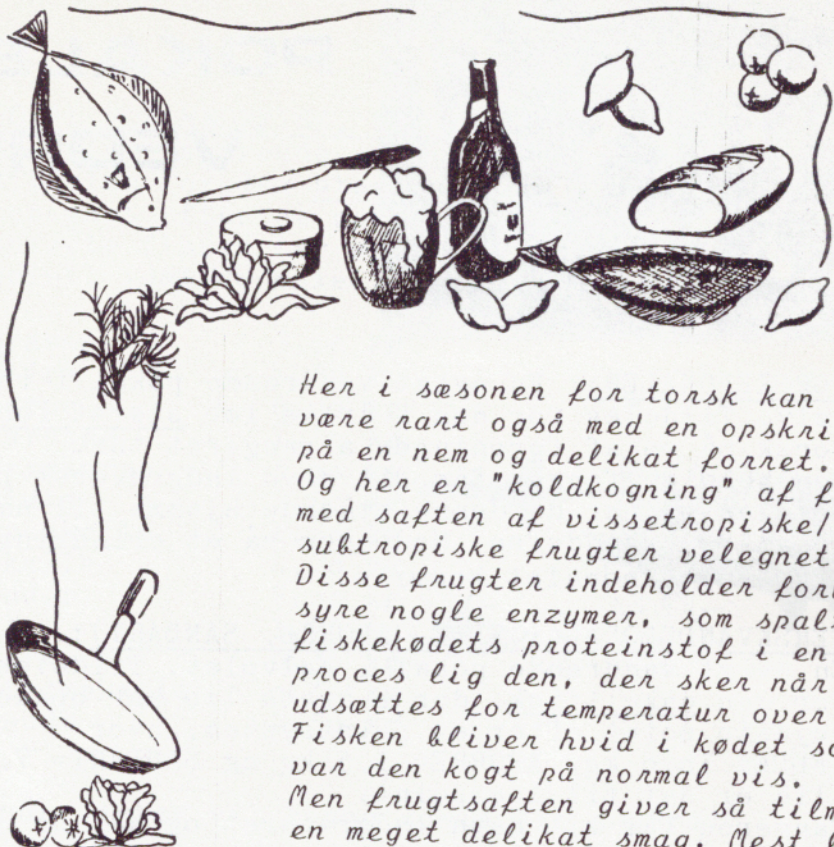 Her i sæsonen for torsk kan
være rart også med en opskri
på en nem og delikat forret.
Og her er "koldkogning" af f
med saften af vissetropiske/
subtropiske frugter velegnet
Disse frugter indeholder for
syre nogle enzymer, som spal
fiskekødets proteinstof i en
proces lig den, der sker når
udsættes for temperatur over
Fisken bliver hvid i kødet so
var den kogt på normal vis.
Men frugtsaften giver så tilm
en meget delikat smag. Mest